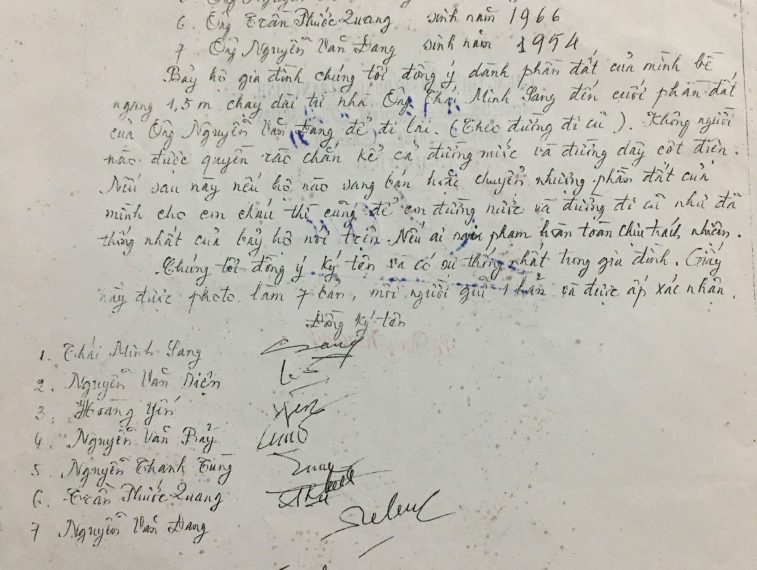 6. Ông Trần Phước Quang sinh năm 1966
7 Ông Nguyễn Văn Đang sinh năm 1954
Bảy hộ gia đình chúng tôi đồng ý dành phần đất của mình bề
ngang 1,5 m chạy dài từ nhà Ông Thái Minh Sang đến cuối phần đất
của Ông Nguyễn Văn Đang để đi lại. (Theo đường đi cũ). Không người
nào được quyền rào chắn kể cả đường nước và đường dây cột điện.
Nếu sau này nếu hộ nào sang bán hoặc chuyển nhượng phần đất của
mình cho con cháu thì cũng để con đường nước và đường đi cũ như đã
thống nhất của bảy hộ nói trên. Nếu ai vi phạm hoàn toàn chịu trách nhiệm.
Chúng tôi đồng ý ký tên và có sự thống nhất trong gia đình. Giấy
này được photo làm 7 bản, mỗi người giữ 1 bản và được ấp xác nhận.
Đồng ký tên
1. Thái Minh Sang
2. Nguyễn Văn Diện
3. Hoàng Yến
4. Nguyễn Văn Bảy
5 Nguyễn Thanh Tùng
6. Trần Phước Quang
7 Nguyễn Văn Đang